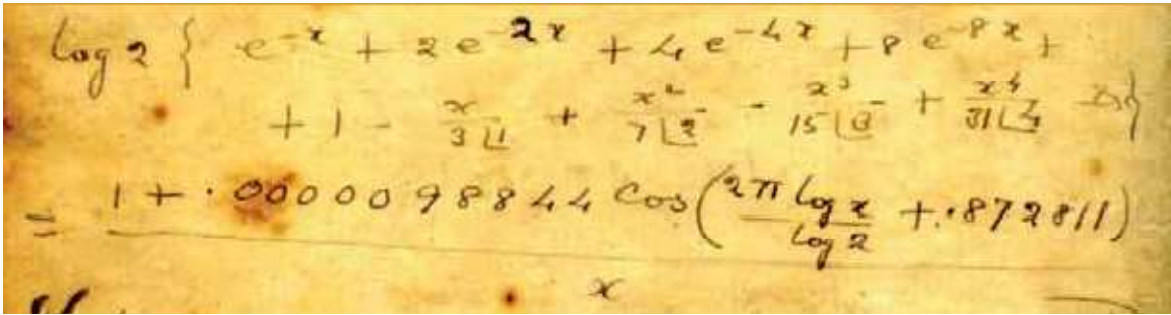 log 2 { e^{-x} + 2e^{-2x} + 4e^{-4x} + 8e^{-8x} +
+ 1 - \frac{x}{3⌊1} + \frac{x^2}{7⌊2} - \frac{x^3}{15⌊3} + \frac{x^4}{31⌊4} - &c }
= \frac{1 + .0000098844 cos(\frac{2π log x}{log 2} + .872811)}{x}